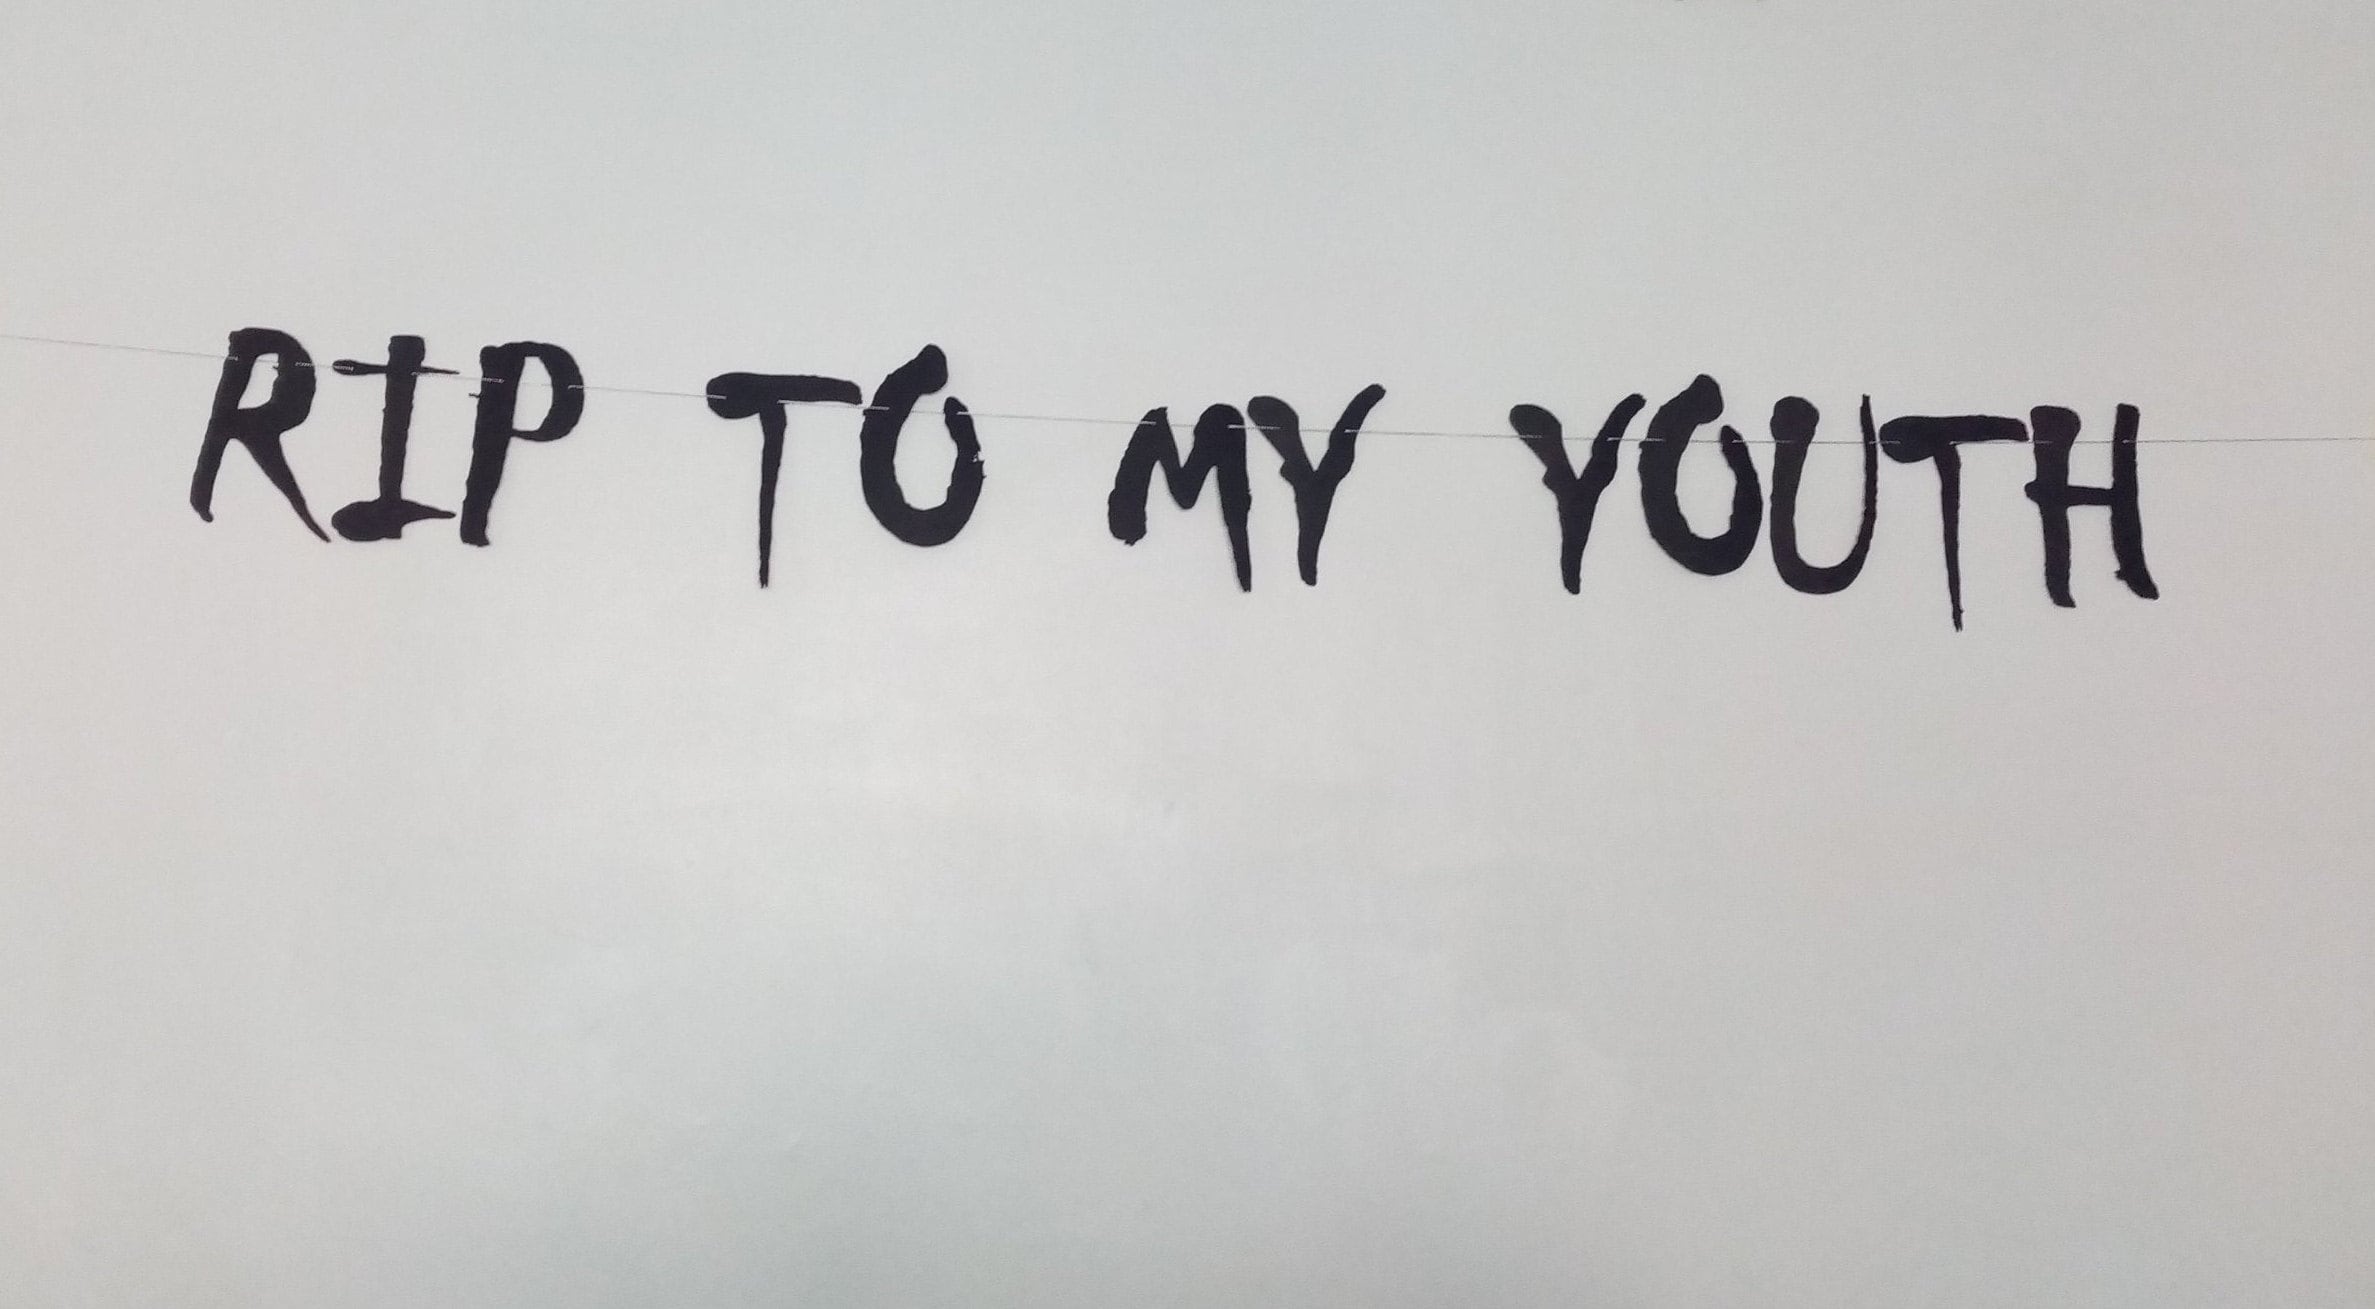 RIP TO MY YOUTH